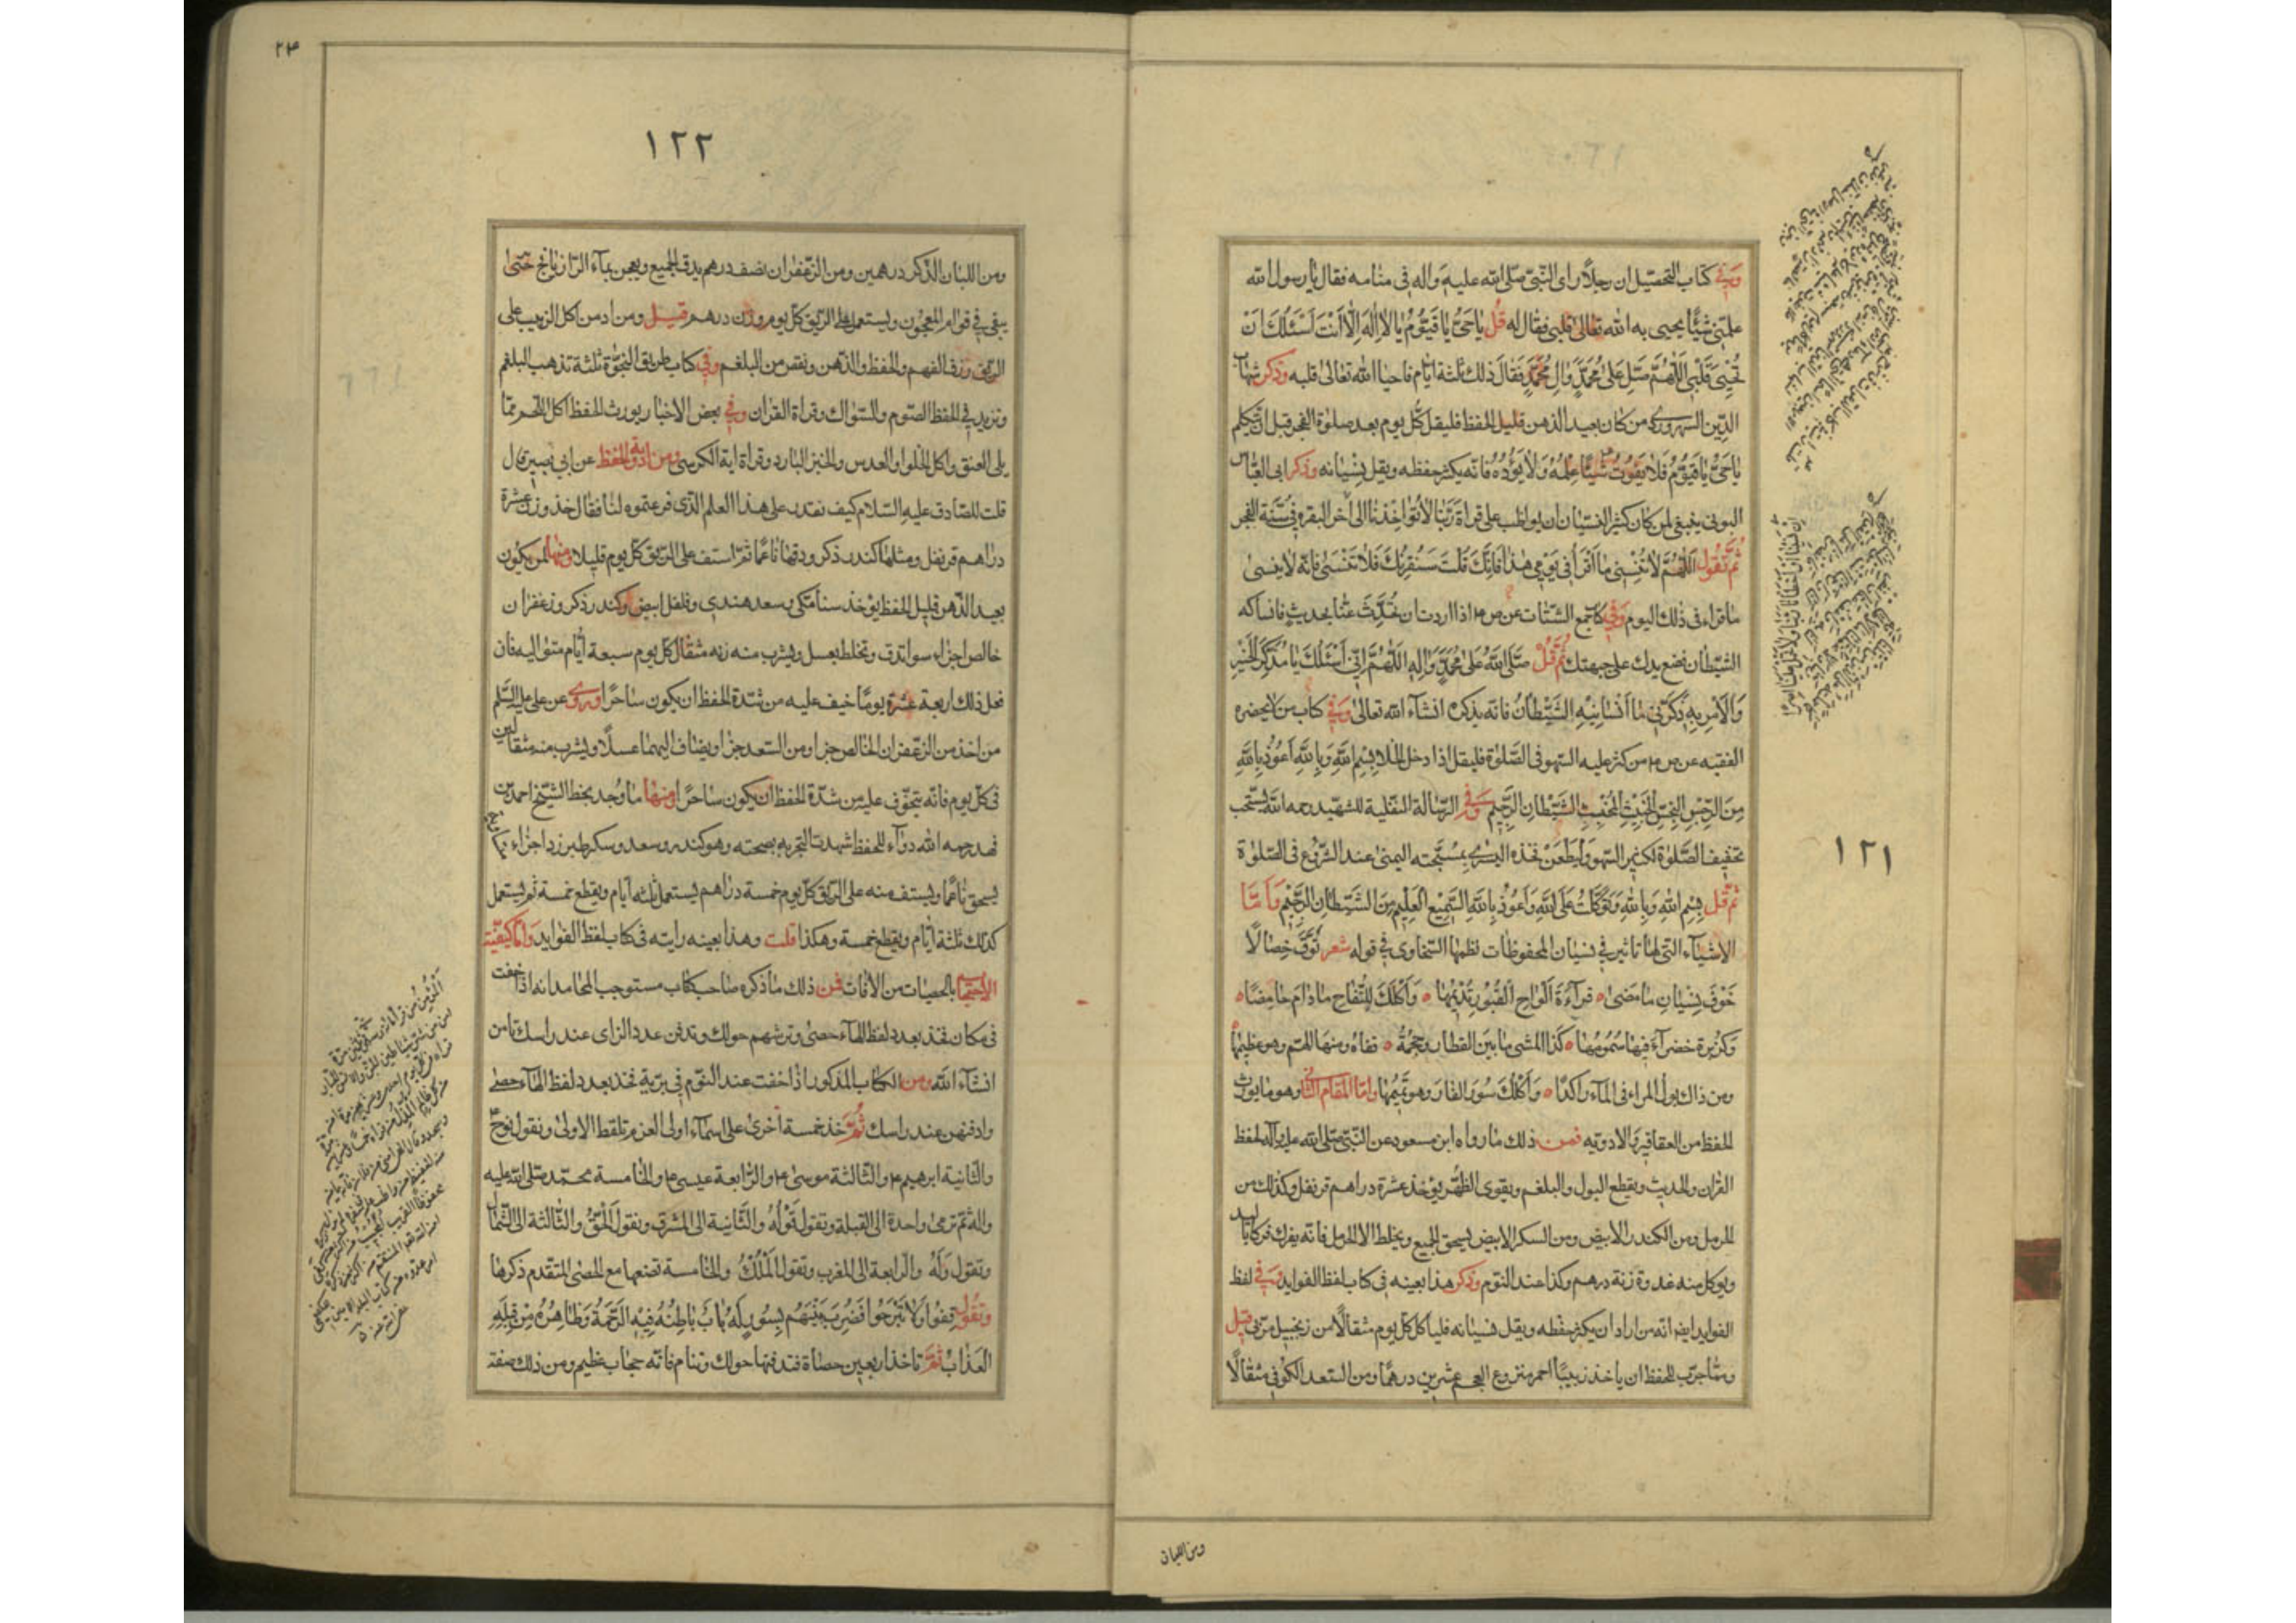 وفي كتاب التحصيل ان رجلا راى النبي صلى الله عليه واله في منامه فقال يا رسول الله
علمني شيئا يحيى به الله تعالى قلبي فقال له قل يا حي يا قيوم يا لا اله الا انت اسئلك ان
تحيي قلبي اللهم صل على محمد وال محمد فقال ذلك ثلثة ايام فاحيا الله تعالى قلبه وذكر شهاب
الدين السهروردي من كان بعيد الذهن قليل الحفظ فليقل كل يوم بعد صلوة الفجر قبل ان يتكلم
يا حي يا قيوم فلا يفوت شيئا علمه ولا يؤده فانه يكثر حفظه ويقل نسيانه وذكر ابى العباس
البوني ينبغي لمن كان كثير النسيان ان يواظب على قراة ربنا لا تؤاخذنا الى اخر البقره في سنة الفجر
ثم تقول اللهم لا تنسني ما اقرأ في يومي هذا فانك قلت سنقرئك فلا تنسى فانه لا ينسى
ما قراه في ذلك اليوم وفي كتاب جمع الشتات عن ص م اذا اردت ان تحدث عنا بحديث فانساكه
الشيطان فضع يدك على جبهتك ثم قل صلى الله على محمد واله اللهم اني اسئلك يا مذكر الخير
والامر به ذكرني ما انسانيه الشيطان فانه يذكره انشاء الله تعالى وفي كتاب من لا يحضره
الفقيه عن ص م من كثر عليه السهو في الصلوة فليقل اذا دخل الخلا بسم الله وبالله اعوذ بالله
من الرجس النجس الخبيث المخبث الشيطان الرجيم وفي الرسالة النفلية للشهيد رحمه الله يستحب
تخفيف الصلوة لكثير السهو وليطعن فخذه اليسرى بمسبحته اليمنى عند الشروع في الصلوة
ثم قل بسم الله وبالله وتوكلت على الله واعوذ بالله السميع العليم من الشيطان الرجيم واما
الاشياء التي لها تاثير في نسيان المحفوظات نظمها السخاوى في قوله شعر توق خصالا
خوف نسيان ما مضى قراءة الواح القبور تديمها واكلك للتفاح ما دام حامضا
وكزبرة خضراء فيها سمومها كذا المشى ما بين القطار وحجمة قفاه ومنها الهم وهو عظيمها
ومن ذاك بول المراء في الماء راكدا واكلك سؤر الفار وهو تميمها واما المقام الثاني وهو ما يورث
الحفظ من العقاقير والادويه فمن ذلك ما رواه ابن مسعود عن النبي صلى الله عليه واله لحفظ
القران والحديث ويقطع البول والبلغم ويقوى الظهر يؤخذ عشرة دراهم قرنفل وكذلك من
الحرمل ومن الكندر الابيض ومن السكر الابيض يسحق الجميع ويخلط الا الحرمل فانه يفرك فركا باليد
ويؤكل منه غدوة زنة درهم وكذا عند النوم وذكر هذا بعينه في كتاب لفظ الفوايد وفي لفظ
الفوايد ايضا انه من اراد ان يكثر حفظه ويقل نسيانه فلياكل كل يوم مثقالا من زنجبيل مربى قيل
ومما جرب للحفظ ان ياخذ زبيبا احمر منزوع العجم عشرين درهما ومن السعد الكوفي مثقالا
١٢١
ومن اللبان
٢٣
١٢٢
ومن اللبان الذكر درهمين ومن الزعفران نصف درهم يدق الجميع ويعجن بماء الرازيانج حتى
يبقى في قوام المعجون ويستعمل على الريق كل يوم وزن درهم قيل ومن ادمن اكل الزبيب على
الريق رزق الفهم والحفظ والذهن ونقص من البلغم وفي كتاب طريق النجاة ثلثة تذهب البلغم
وتزيد في الحفظ الصوم والسواك وقراة القران وفي بعض الاخبار يورث الحفظ اكل اللحم مما
يلى العنق واكل الحلوا والعدس والخبز البارد وقراة اية الكرسي ومن ادوية الحفظ عن ابي بصير قال
قلت للصادق عليه السلام كيف نقدر على هذا العلم الذي فرعتموه لنا فقال خذ وزن عشرة
دراهم قرنفل ومثلها كندر ذكر ودقها ناعما ثم استف على الريق كل يوم قليلا ومنها لمن يكون
بعيد الذهن قليل الحفظ يؤخذ سنا مكي وسعد هندي وفلفل ابيض وكندر ذكر وزعفران
خالص اجزاء سوا تدق وتخلط بعسل ويشرب منه زنه مثقال كل يوم سبعة ايام متواليه فان
فعل ذلك اربعة عشرة يوما خيف عليه من شدة الحفظ ان يكون ساحرا وروى عن على عليه السلم
من اخذ من الزعفران الخالص جزا ومن السعد جزا ويضاف اليهما عسلا ويشرب منه مثقالين
في كل يوم فانه يتخوف عليه من شدة الحفظ ان يكون ساحرا ومنها ما وجد بخط الشيخ احمد بن
فهد رحمه الله دواء للحفظ شهدت التجربه بصحته وهو كندر وسعد وسكر طبرزد اجزاء
يسحق ناعما ويستف منه على الريق كل يوم خمسة دراهم يستعمل ثلثه ايام ويقطع خمسة ثم يستعمل
كذلك ثلثة ايام ويقطع خمسة وهكذا قلت وهذا بعينه رايته في كتاب لفظ الفوايد واما كيفية
الاحتماء بالحصيات من الافات فمن ذلك ما ذكره صاحب كتاب مستوجب المحامد انه اذا خفت
في مكان فخذ بعدد لفظ الماء حصى وترشهم حولك وتدفن عدد الزاى عند راسك تامن
انشاء الله ومن الكتاب المذكور اذا خفت عند النوم في برية فخذ بعدد لفظ الماء حصى
وادفنهن عند راسك ثم خذ خمسة اخرى على اسماء اولى العزم تلقط الاولى وتقول نوح
والثانية ابرهيم م والثالثة موسى م والرابعة عيسى م والخامسة محمد صلى الله عليه
واله ثم ترمى واحدة الى القبلة وتقول قوله والثانية الى المشرق وتقول الحق والثالثة الى الشمال
وتقول وله والرابعة الى المغرب وتقول الملك والخامسة تضعها مع الحصى المتقدم ذكرها
وتقول قفوا ولا تبرحوا فضرب بينهم بسور له باب باطنه فيه الرحمة وظاهره من قبله
العذاب ثم تاخذ اربعين حصاة فتدفنها حولك وتنام فانه حجاب عظيم ومن ذلك صفة